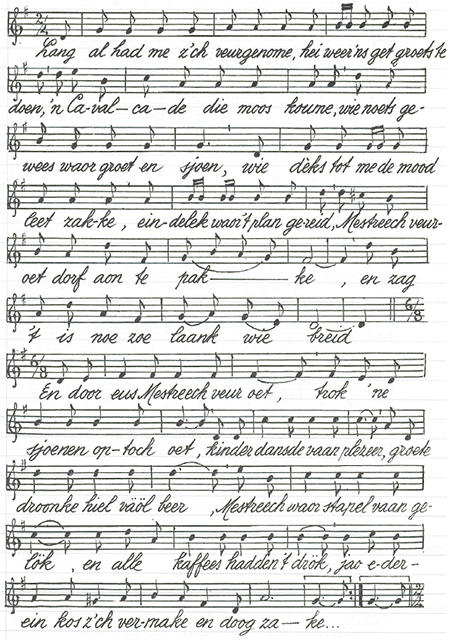 Lang al had me z'ch veurgenome, hei weer'ns get groets te
doen, 'n Ca-val-ca-de die moos koume, wie noets ge-
wees waor groet en sjoen, wie dèks tot me de mood
leet zak-ke, ein-delek waor't plan ge-reid, Mestreech veur-
oet dorf aon te pak- ke, en zag
't is noe zoe laank wie breid
En door eus Mestreech veur oet, trok 'ne
sjoenen op-toch oet, kinder dansde vaan plezeer, groete
droonke hiel väöl beer, Mestreech waor stapel vaan ge-
lök, en alle kaffees hadden't drök, jao e-der-
ein kos z'ch ver-make en doog za-ke...